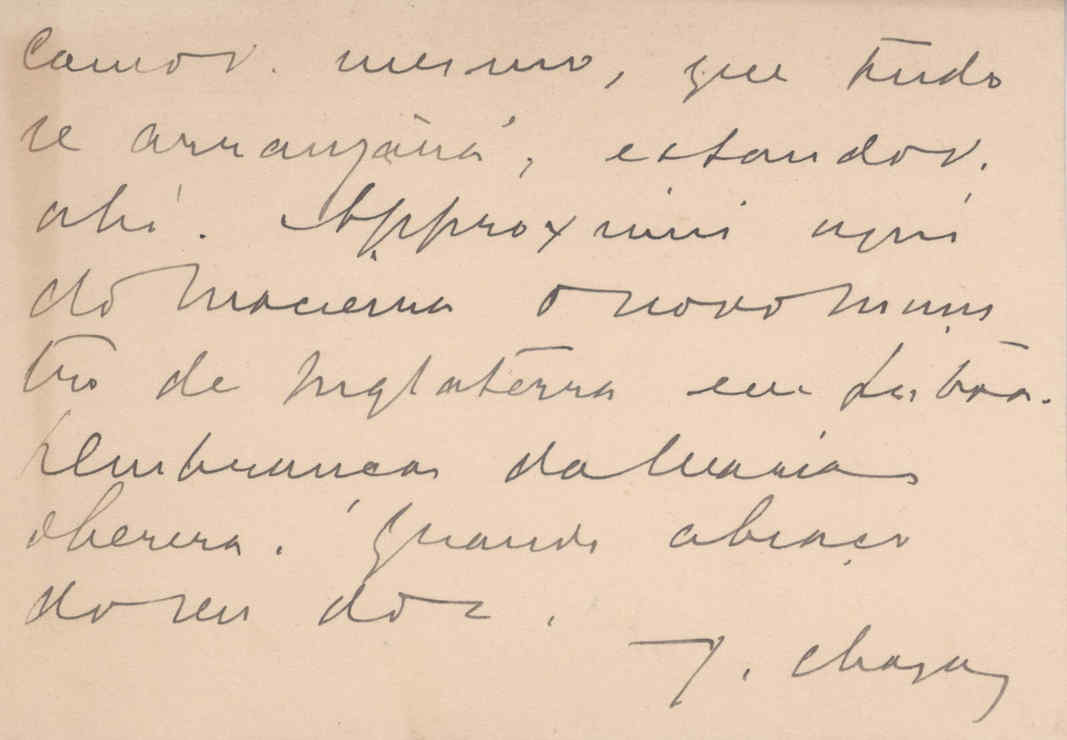 camos. mesmo, que tudo
se arranjará, estando v.
ahi. Approximei aqui
do Macieira o novo minis
tro de Inglaterra em Lisboa.
Lembranças da Maria
Grande abraço
do seu do c.
J. Chagas